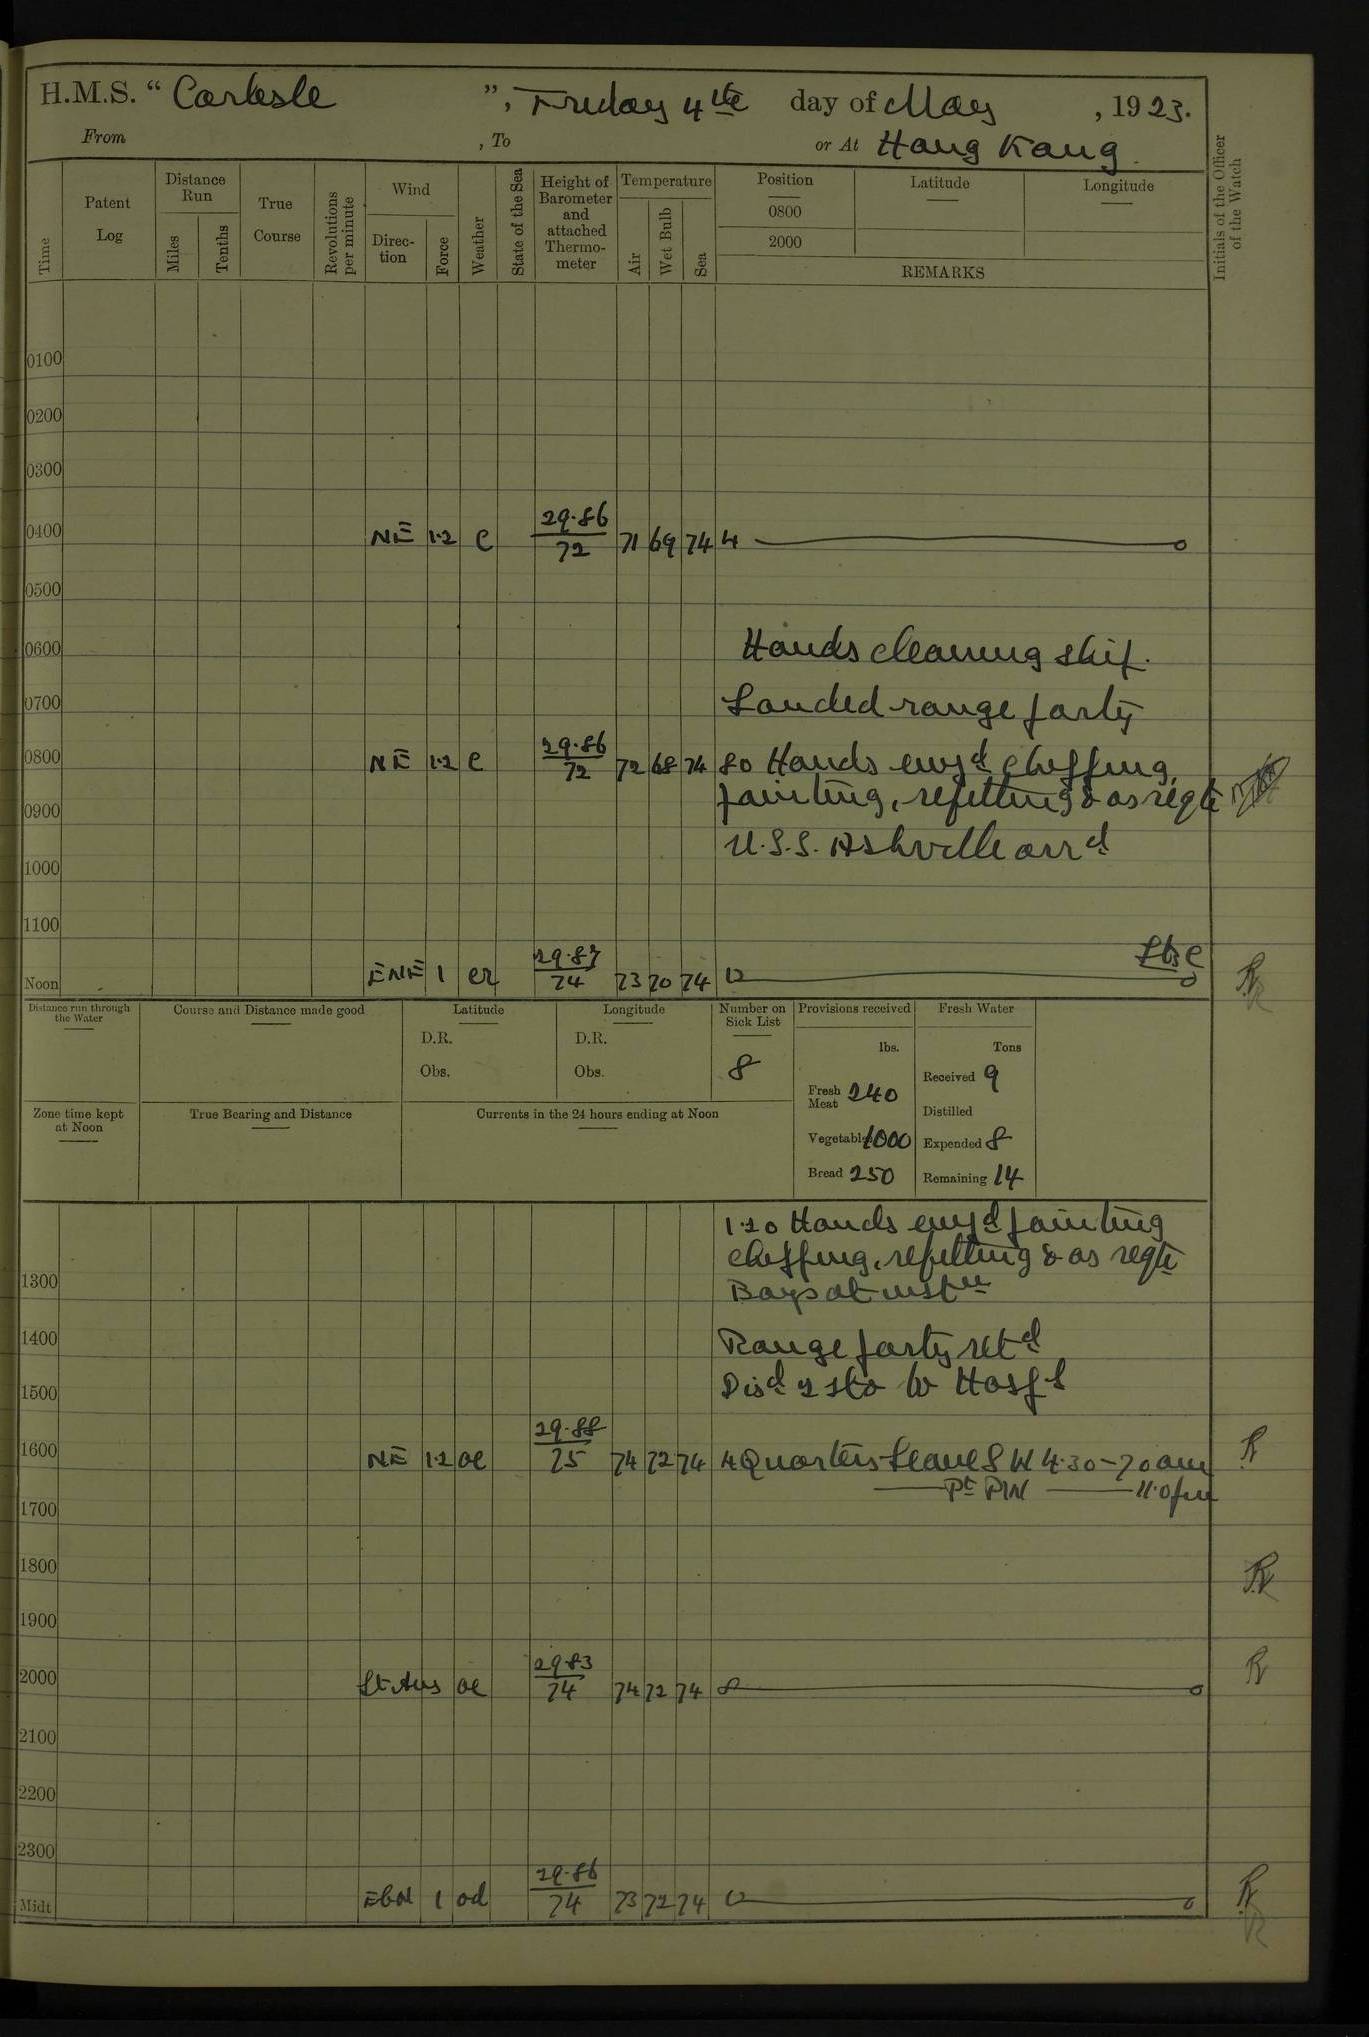 H.M.S. “ Carlisle ”, Friday 4th day of May , 1923.
From , To or At Hong Kong.
Time
Patent Log
Distance Run
Miles
Tenths
True Course
Revolutions per minute
Wind
Direction
Force
Weather
State of the Sea
Height of Barometer and attached Thermometer
Temperature
Air
Wet Bulb
Sea
Position
0800
2000
Latitude
Longitude
REMARKS
Initials of the Officer of the Watch
0100
0200
0300
0400 NE 1.2 c 29.86/72 71 69 74 4
0500
0600 Hands cleaning ship.
0700 Landed range party
0800 NE 1.2 c 29.86/72 72 68 74 80 Hands emyd chipping,
painting, refitting & as reqte
0900
U.S.S. Ashville arrd
1000
1100
Noon ENE 1 cr 29.87/74 73 70 74 12
Distance run through the Water
Course and Distance made good
Latitude
D.R.
Obs.
Longitude
D.R.
Obs.
Number on Sick List
8
Provisions received
lbs.
Fresh Meat 240
Vegetables 1000
Bread 250
Fresh Water
Tons
Received 9
Distilled
Expended 8
Remaining 14
Zone time kept at Noon
True Bearing and Distance
Currents in the 24 hours ending at Noon
1.20 Hands emyd painting
chipping, refitting & as reqte
1300
Boys at instn
1400 Range party retd
1500 Discd 2 sto to Hospl
1600 NE 1.2 oc 29.88/75 74 72 74 4 Quarters Leave SW 4.30-7.0am
Pt PW 11.0pm
1700
1800
1900
2000 Lt Airs oc 29.83/74 74 72 74 8
2100
2200
2300
Midt EbN 1 od 29.86/74 73 72 74 12